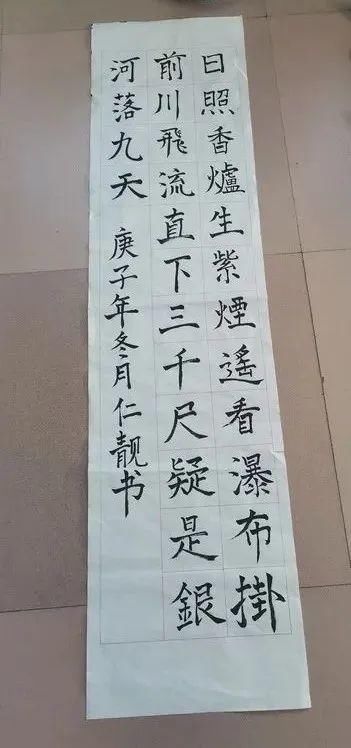 日照香爐生紫煙遙看瀑布掛
前川飛流直下三千尺疑是銀
河落九天 庚子年冬月仁靚书